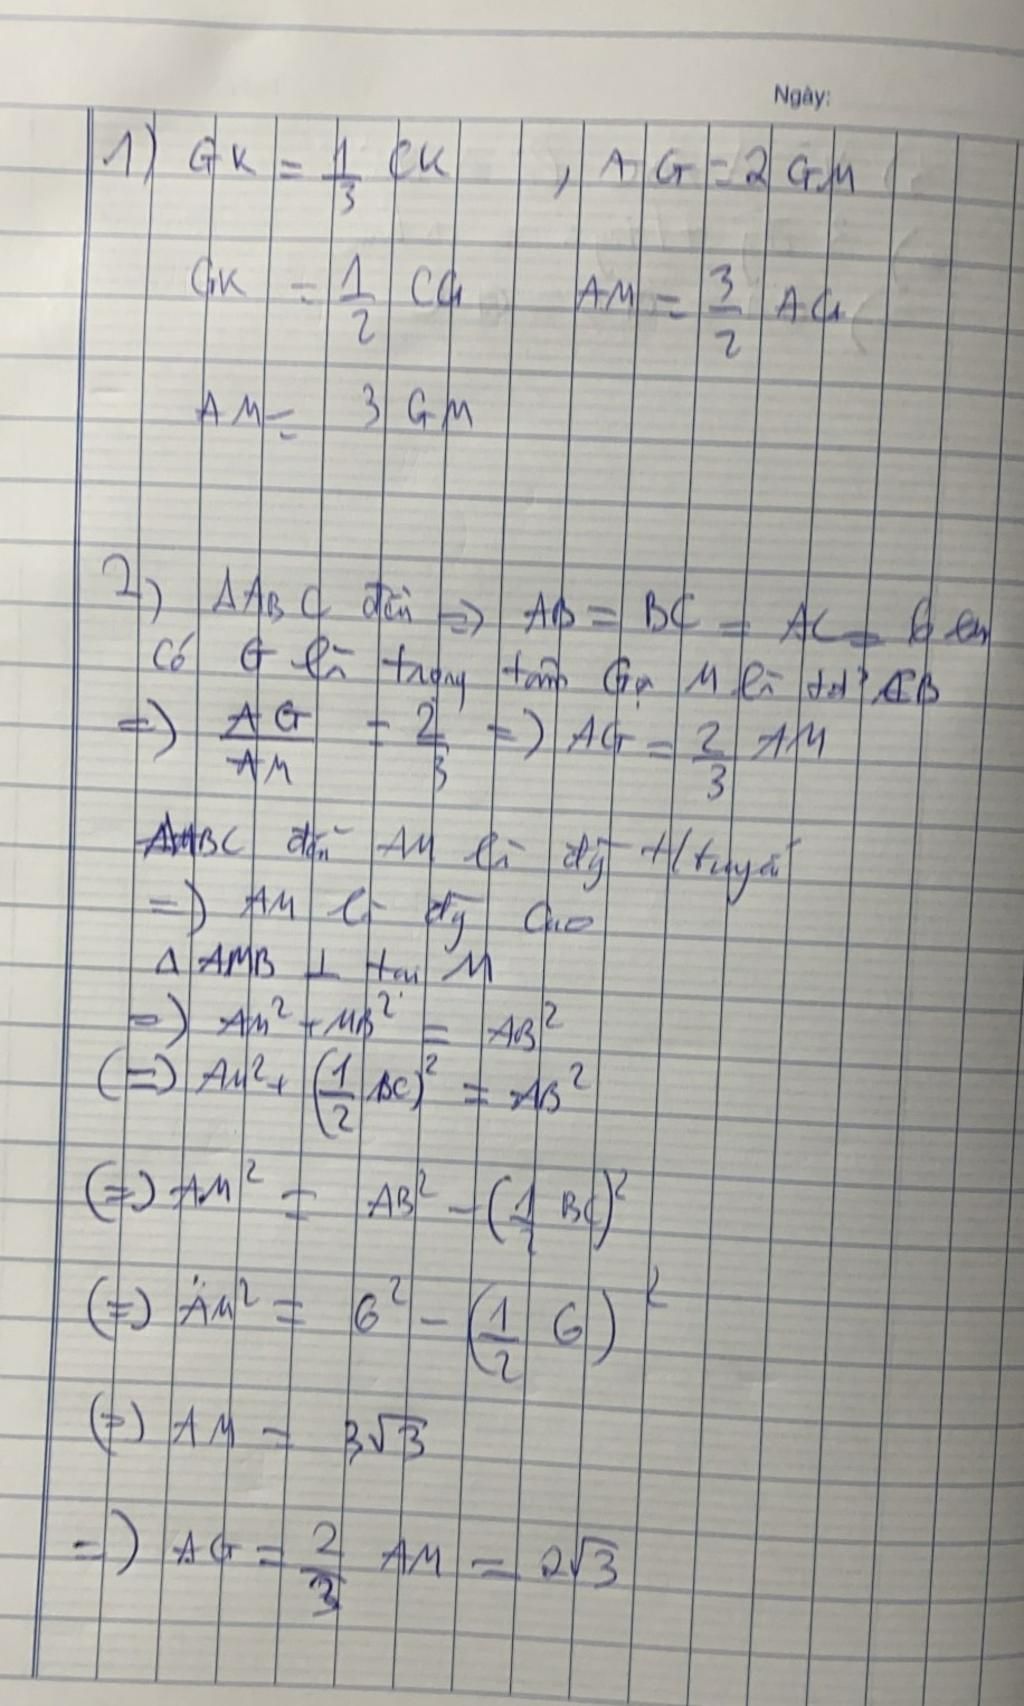 Ngày:
1) GK = 1/3 CK , AG = 2 GM
GK = 1/2 CG AM = 3/2 AG
AM = 3 GM
2) ΔABC đều => AB = BC = AC = 6 cm
Có G là trọng tâm M là CB
=> AG/AM = 2/3 => AG = 2/3 AM
ABC đều AM là đg tuyến
=> AM là đg cao
Δ AMB ⊥ tại M
=> AM² + MB² = AB²
(=) AM² + (1/2 BC)² = AB²
(=) AM² = AB² - (1/2 BC)²
(=) AM² = 6² - (1/2 6)²
(=) AM = 3√3
=) AG = 2/3 AM = 2√3